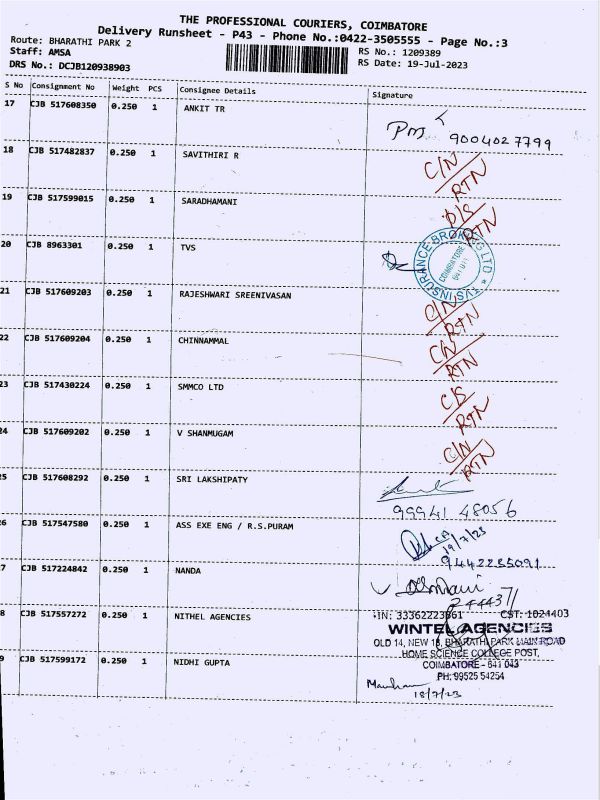 THE PROFESSIONAL COURIERS, COIMBATORE
Delivery Runsheet - P43 - Phone No.:0422-3505555 - Page No.:3
Route: BHARATHI PARK 2
RS No.: 1209389
Staff: AMSA
RS Date: 19-Jul-2023
DRS No.: DCJB120938903
S No Consignment No Weight PCS Consignee Details Signature
17 CJB 517608350 0.250 1 ANKIT TR
9004027799
18 CJB 517482837 0.250 1 SAVITHIRI R C/N
RTN
19 CJB 517599015 0.250 1 SARADHAMANI D/S
RTN
20 CJB 8963301 0.250 1 TVS
TVS INSURANCE BROKING LTD
COIMBATORE
641 011
21 CJB 517609203 0.250 1 RAJESHWARI SREENIVASAN C/N
RTN
22 CJB 517609204 0.250 1 CHINNAMMAL C/N
RTN
23 CJB 517430224 0.250 1 SMMCO LTD C/S
RTN
24 CJB 517609202 0.250 1 V SHANMUGAM C/N
RTN
25 CJB 517608292 0.250 1 SRI LAKSHIPATY
99941 48056
26 CJB 517547580 0.250 1 ASS EXE ENG / R.S.PURAM
19/7/23
9442285091
7 CJB 517224842 0.250 1 NANDA
244437
8 CJB 517557272 0.250 1 NITHEL AGENCIES
TIN: 33362223661 CST: 1024403
WINTEL AGENCIES
OLD 14, NEW 18, BHARATHI PARK MAIN ROAD
HOME SCIENCE COLLEGE POST,
COIMBATORE - 641 043
PH: 99525 54254
9 CJB 517599172 0.250 1 NIDHI GUPTA
18/7/23